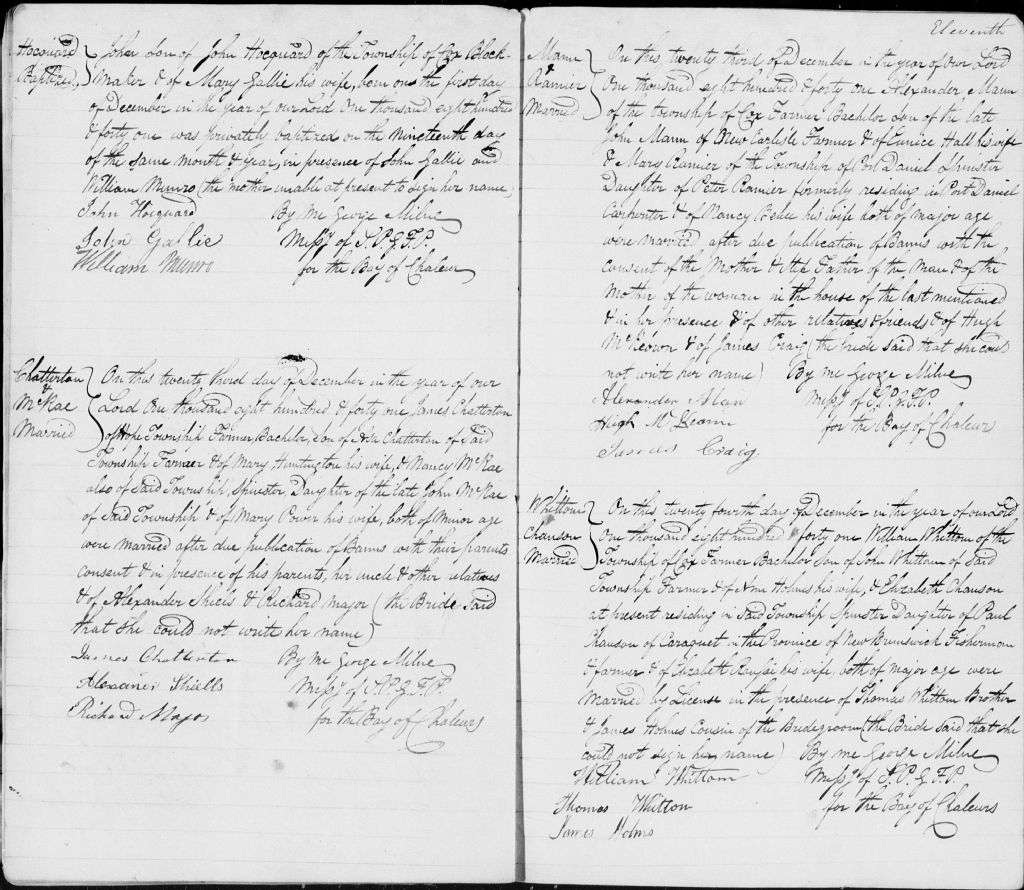 Hocquard
Baptized
John Son of John Hocquard of the Township of Cox Block-
maker & of Mary Gallie his wife, born on the first day
of December in the year of our Lord One thousand eight hundred
& forty one was privately baptized on the nineteenth day
of the same month & year, in presence of John Gallie and
William Munro (the mother unable at present to sign her name)
John Hocquard By me George Milne
John Gallie Missy of S.P.G.F.P.
William Munro for the Bay of Chaleur
Chatterton
&
McRae
Married
On this twenty third day of December in the year of our
Lord One thousand eight hundred & forty one James Chatterton
of Hope Township Farmer Bachelor, Son of Chatterton of Said
Township Farmer & of Mary Huntington his wife, & Nancy McRae
also of Said Township, Spinster, Daughter of the late John McRae
of Said Township & of Mary Power his wife, both of Minor age
were married after due publication of Banns with their parents
consent & in presence of his parents, her uncle & other relatives
& of Alexander Shiels & Richard Major (the Bride Said
that she could not write her name)
James Chatterton By me George Milne
Alexander Shiells Missy of S.P.G.F.P.
Richard Major for the Bay of Chaleurs
Eleventh
Mann
&
Ramier
Married
On this twenty third of December in the year of our Lord
One thousand eight hundred & forty one Alexander Mann
of the township of Cox Farmer Bachelor Son of the late
John Mann of New Carlisle Farmer & of Eunice Hall his wife
& Mary Ramier of the Township of Port Daniel Spinster
Daughter of Peter Ramier formerly residing in Port Daniel
Carpenter & of Nancy his wife both of major age
were married after due publication of Banns with the
consent of the Mother & Step Father of the Man & of the
mother of the woman in the house of the last mentioned
& in her presence & of other relatives & friends & of Hugh
McKeown & of James Craig (the bride said that she could
not write her name) By me George Milne
Alexander Man Missy of S.P.G.F.P.
Hugh for the Bay of Chaleur
James Craig
Whittom
Chanson
Married
On this twenty fourth day of December in the year of our Lord
One thousand eight hundred & forty one William Whittom of the
Township of Cox Farmer Bachelor Son of John Whittom of Said
Township Farmer & of Ann Holmes his wife, & Elizabeth Chanson
at present residing in Said Township Spinster Daughter of Paul
Chanson of Caraquet in the Province of New Brunswick Fisherman
& farmer & of Elizabeth his wife, both of major age were
Married by License in the presence of Thomas Whittom Brother
& James Holmes Cousin of the Bridegroom (the Bride Said that she
could not sign her name) By me George Milne
William Whittom Missy of S.P.G.F.P.
Thomas Whitton for the Bay of Chaleurs
James Holms